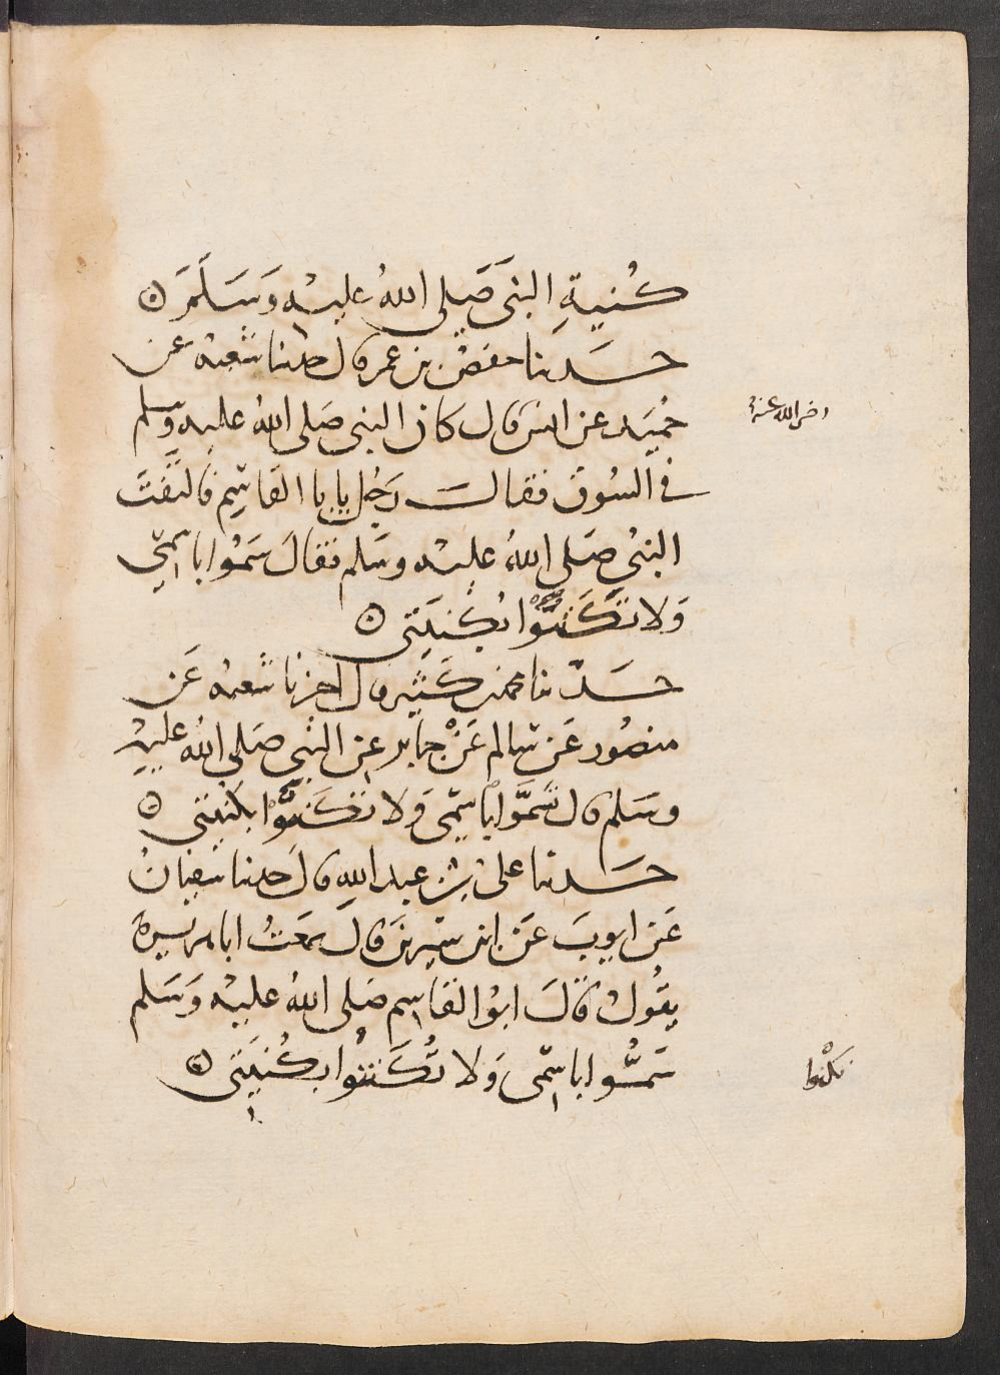 كُنيةِ النبي صَلى اللهُ عليْه وَسَلَّمَ ه
حَدثنا حفصُ بن عمر قال حدثنا شعبة عن
حُمَيد عن انس قال كان النبي صَلى اللهُ عليه وسلم
رضي الله عنهُ
في السُوق فقالَ رَجُل يا ابا القاسِم فالتفتَ
النبيُ صَلى اللهُ عليْه وسَلم فقالَ سَمُوا باسمي
وَلا تكَنَّوْا بكُنيَتي ه
حَدّثنا محمد بن كَثير قال اخبرنا شعبة عَن
منصُور عَن سَالم عَنْ جابر عن النبي صَلى اللهُ عليْه
وسَلم قال تَسَمَّوا باسمي وَلا تكَنَّوْا بكنيتي ه
حَدثنا على بنُ عبد اللهِ قالَ حدثنا سفيانُ
عَن ايوبَ عَن ابن سيرينَ قالَ سمعتُ ابا هريرة
يقُولُ قَالَ ابوُ القاسم صَلى اللهُ عليْه وَسَلم
سَمُّوا باسمى وَلا تُكَنُّوا بكُنيَتى ه
تكْنوا